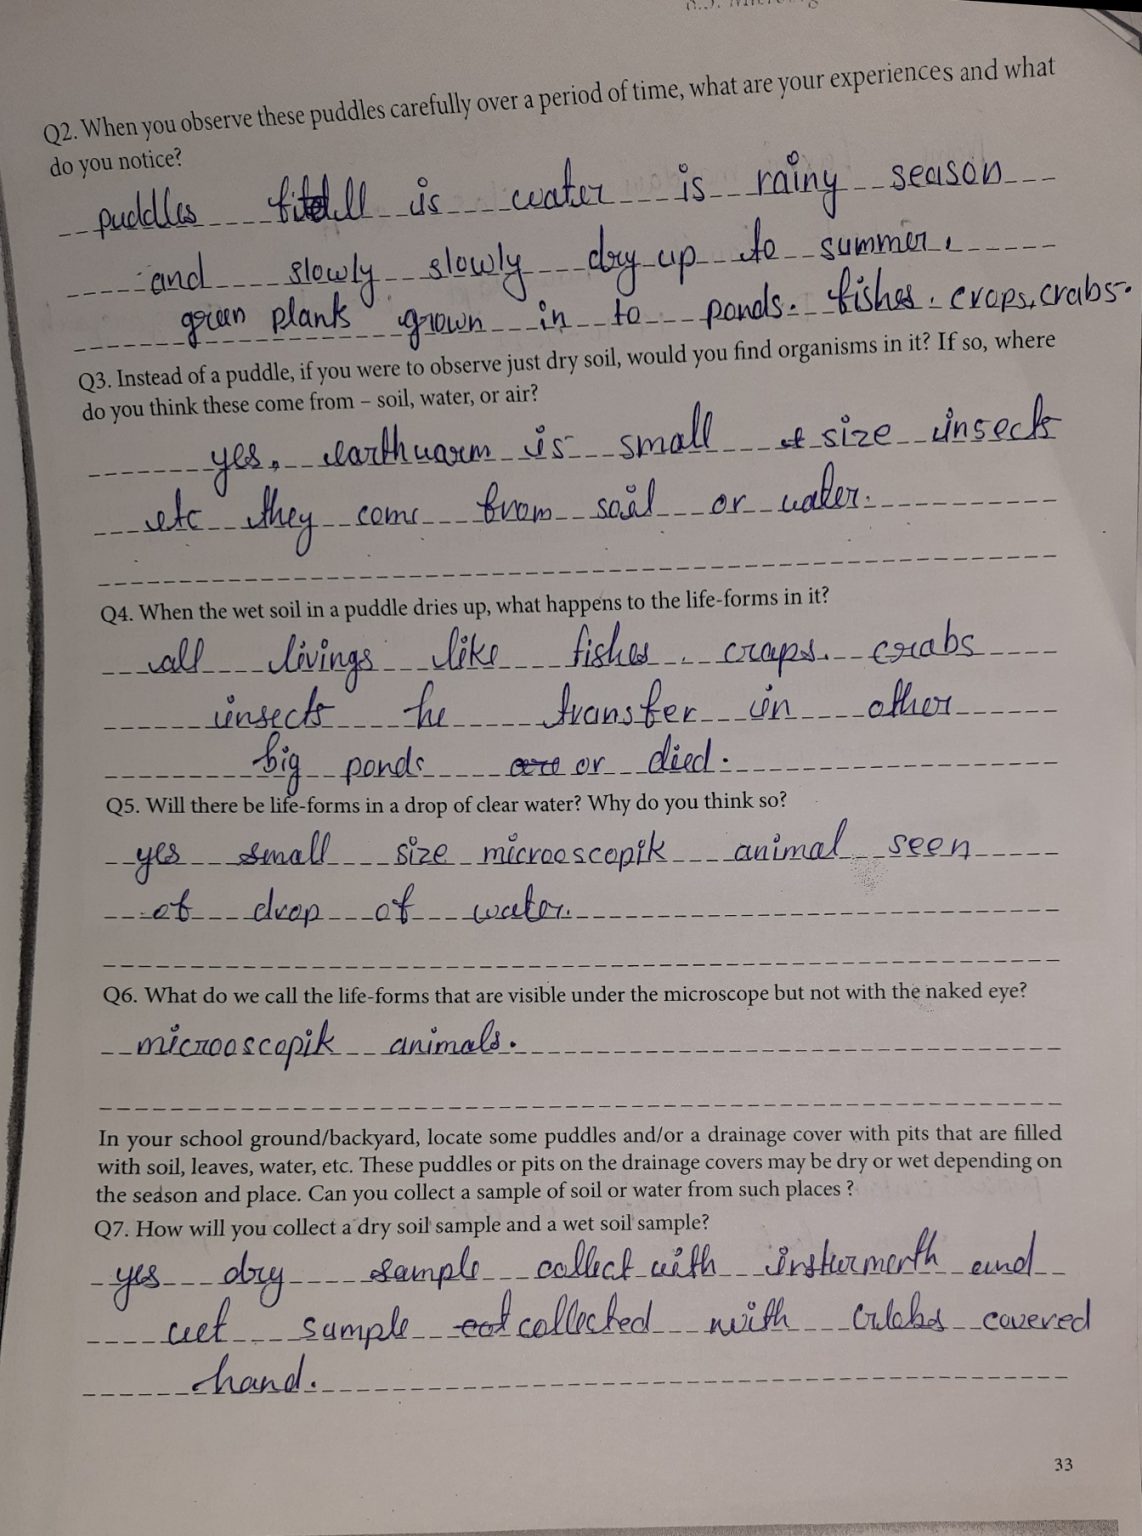 Q2. When you observe these puddles carefully over a period of time, what are your experiences and what
do you notice?
puddles is water is rainy season
and slowly slowly dry up to summer,
green plants grown in to ponds. fishes, craps, crabs.
Q3. Instead of a puddle, if you were to observe just dry soil, would you find organisms in it? If so, where
do you think these come from – soil, water, or air?
yes, earthwarm is small size insects
etc they come from soil or water.
Q4. When the wet soil in a puddle dries up, what happens to the life-forms in it?
all livings like fishes, craps, crabs
insects he transfer in other
big ponds or died.
Q5. Will there be life-forms in a drop of clear water? Why do you think so?
yes small size microoscopik animal seen
of drop of water.
Q6. What do we call the life-forms that are visible under the microscope but not with the naked eye?
microoscopik animals.
In your school ground/backyard, locate some puddles and/or a drainage cover with pits that are filled
with soil, leaves, water, etc. These puddles or pits on the drainage covers may be dry or wet depending on
the season and place. Can you collect a sample of soil or water from such places ?
Q7. How will you collect a dry soil sample and a wet soil sample?
yes dry sample collect with and
wet sample collected with covered
hand.
33